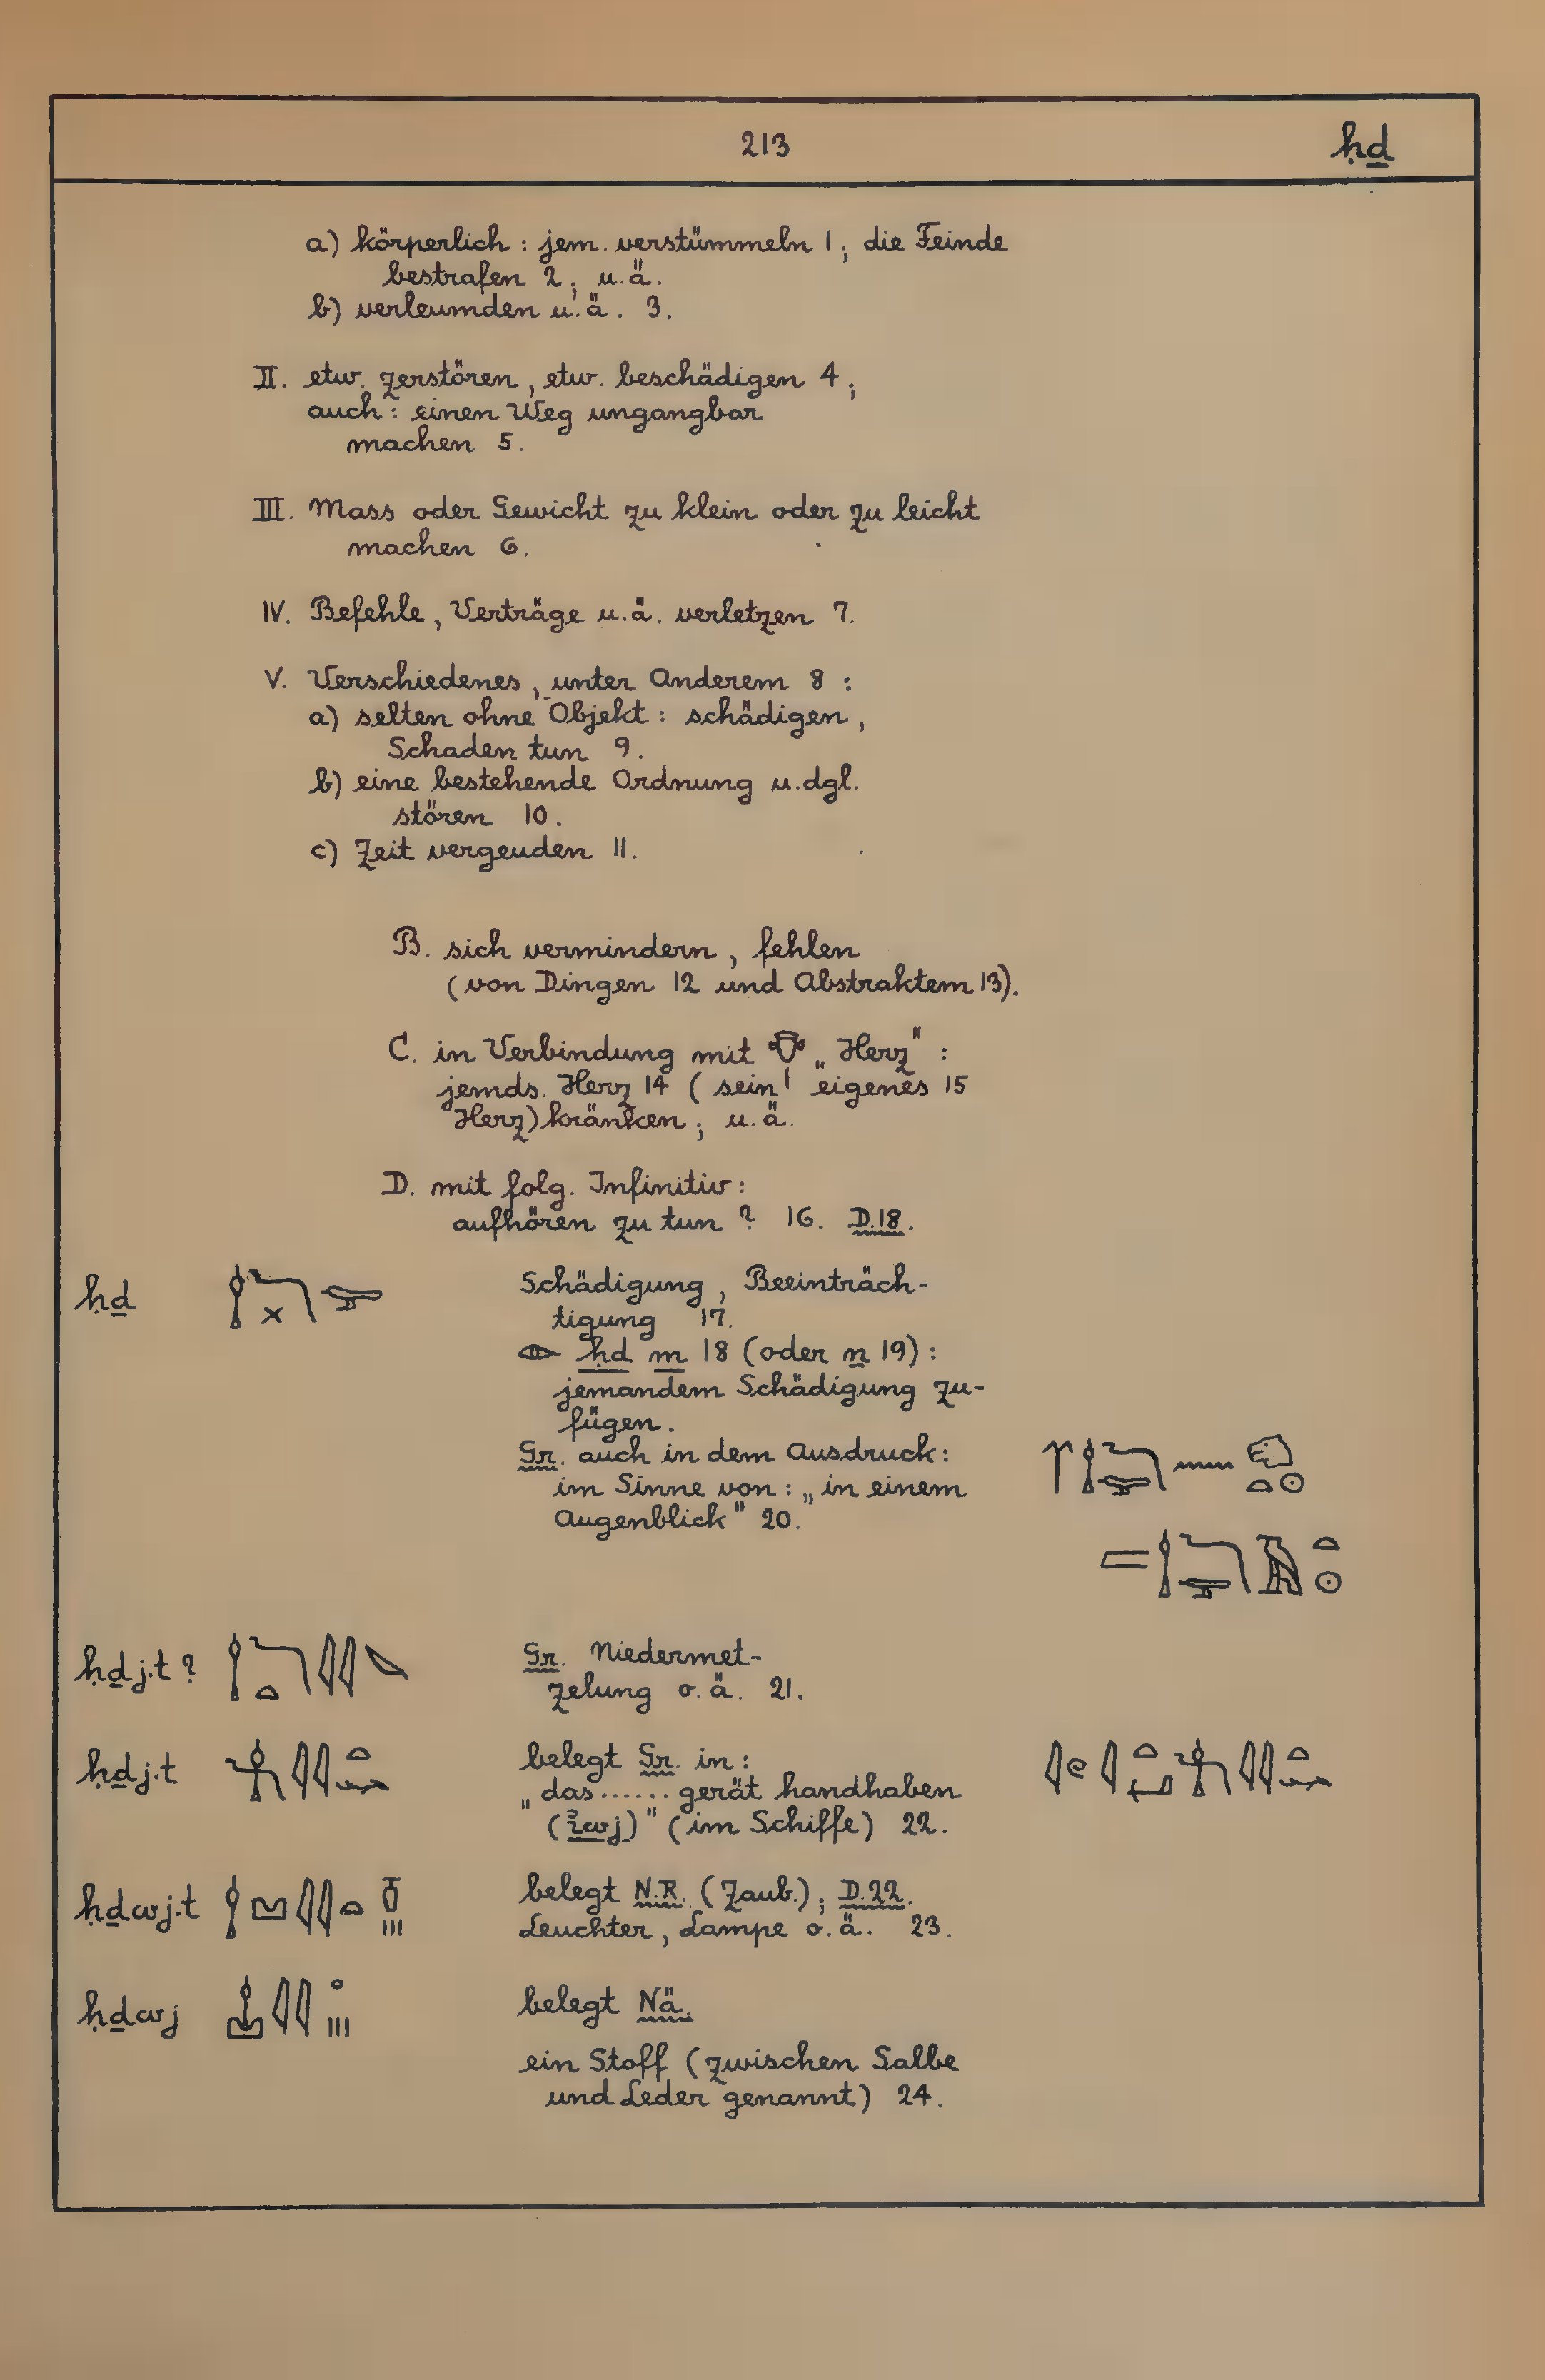 213 ḥḏ
a) körperlich : jem. verstümmeln 1 ; die Feinde
bestrafen 2 ; u.ä.
b) verleumden u.ä. 3.
II. etw. zerstören , etw. beschädigen 4 ;
auch : einen Weg ungangbar
machen 5.
III. Mass oder Gewicht zu klein oder zu leicht
machen 6.
IV. Befehle , Verträge u.ä. verletzen 7.
V. Verschiedenes , unter Anderem 8 :
a) selten ohne Objekt : schädigen ,
Schaden tun 9.
b) eine bestehende Ordnung u.dgl.
stören 10.
c) Zeit vergeuden 11.
B. sich vermindern , fehlen
(von Dingen 12 und Abstraktem 13).
C. in Verbindung mit 𓄣 „Herz" :
jemds. Herz 14 ( sein eigenes 15
Herz) kränken ; u.ä.
D. mit folg. Infinitiv :
aufhören zu tun ? 16. D.18.
ḥḏ Schädigung , Beeinträch-
tigung 17.
𓁹 ḥḏ m 18 (oder n 19) :
jemandem Schädigung zu-
fügen.
Gr. auch in dem Ausdruck :
im Sinne von : „in einem
Augenblick" 20.
ḥḏj.t ? Gr. Niedermet-
zelung o.ä. 21.
ḥḏj.t belegt Gr. in :
„das ...... gerät handhaben
(ꞽwj)" (im Schiffe) 22.
ḥḏwj.t belegt N.R. (Zaub.) ; D.22.
Leuchter , Lampe o.ä. 23.
ḥḏwj belegt Nä.
ein Stoff (zwischen Salbe
und Leder genannt) 24.